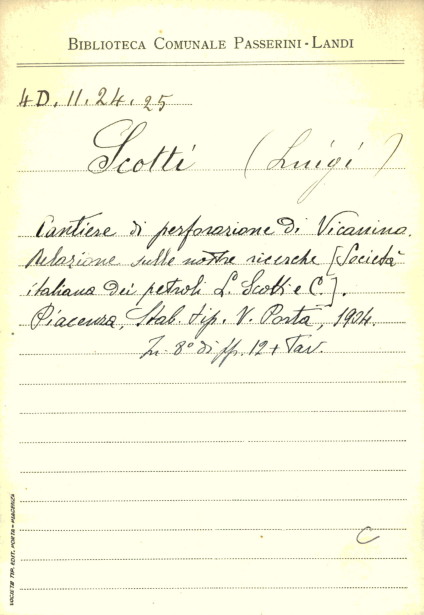 BIBLIOTECA COMUNALE PASSERINI-LANDI
4D. 11. 24. 25
Scotti (Luigi)
Cantiere di perforazione di Vicanino.
Relazione sulle nostre ricerche [Società
italiana dei petroli L. Scotti e C.].
Piacenza, Stab. tip. V. Porta, 1904.
In 8° di pp. 12 + Tav.
C
SOCIETÀ TIP. EDIT. PORTA - PIACENZA